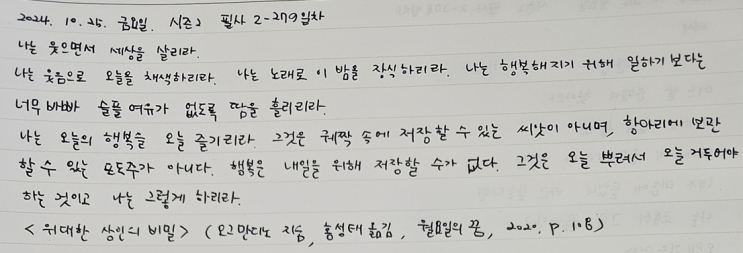 2024. 10. 25. 금요일. 시즌2 필사 2-279일차
나는 웃으면서 세상을 살리라.
나는 웃음으로 오늘을 채색하리라. 나는 노래로 이 밤을 장식하리라. 나는 행복해지기 위해 일하기 보다는
너무 바빠 슬플 여유가 없도록 땀을 흘리리라.
나는 오늘의 행복을 오늘 즐기리라. 그것은 궤짝 속에 저장할 수 있는 씨앗이 아니며, 항아리에 보관
할 수 있는 포도주가 아니다. 행복은 내일을 위해 저장할 수가 없다. 그것은 오늘 뿌려서 오늘 거두어야
하는 것이고 나는 그렇게 하리라.
< 위대한 상인의 비밀 > ( 오그만디노 지음, 홍성태 옮김, 월요일의 꿈, 2020. p. 108 )